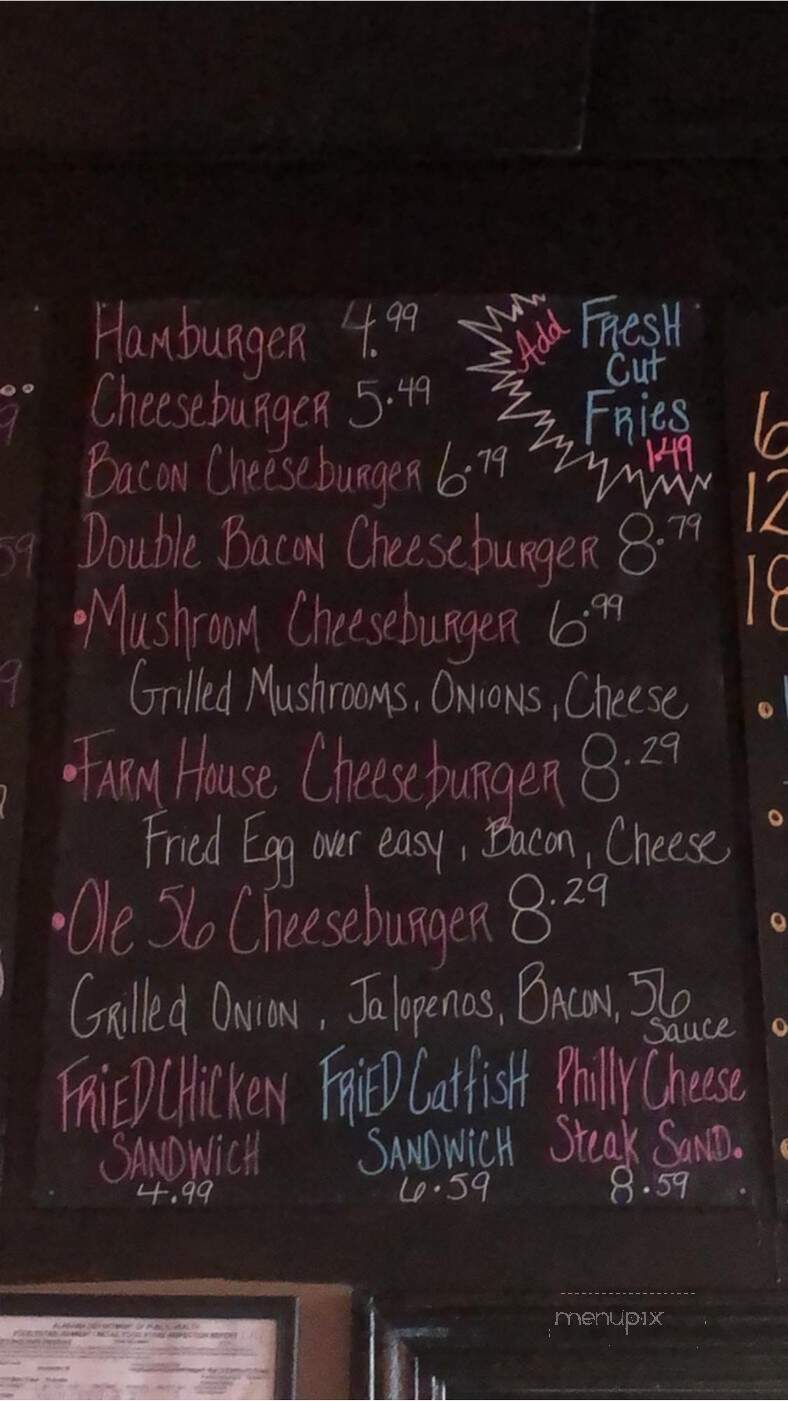 Hamburger 4.99
Cheeseburger 5.49
Add Fresh
Cut
Fries
1.49
Bacon Cheeseburger 6.79
Double Bacon Cheeseburger 8.79
•Mushroom Cheeseburger 6.99
Grilled Mushrooms, Onions, Cheese
•Farm House Cheeseburger 8.29
Fried Egg over easy, Bacon, Cheese
•Ole 56 Cheeseburger 8.29
Grilled Onion, Jalopenos, Bacon, 56
Sauce
Fried Chicken
Sandwich
4.99
Fried Catfish
Sandwich
6.59
Philly Cheese
Steak Sand.
8.59
6
12
18
menupix